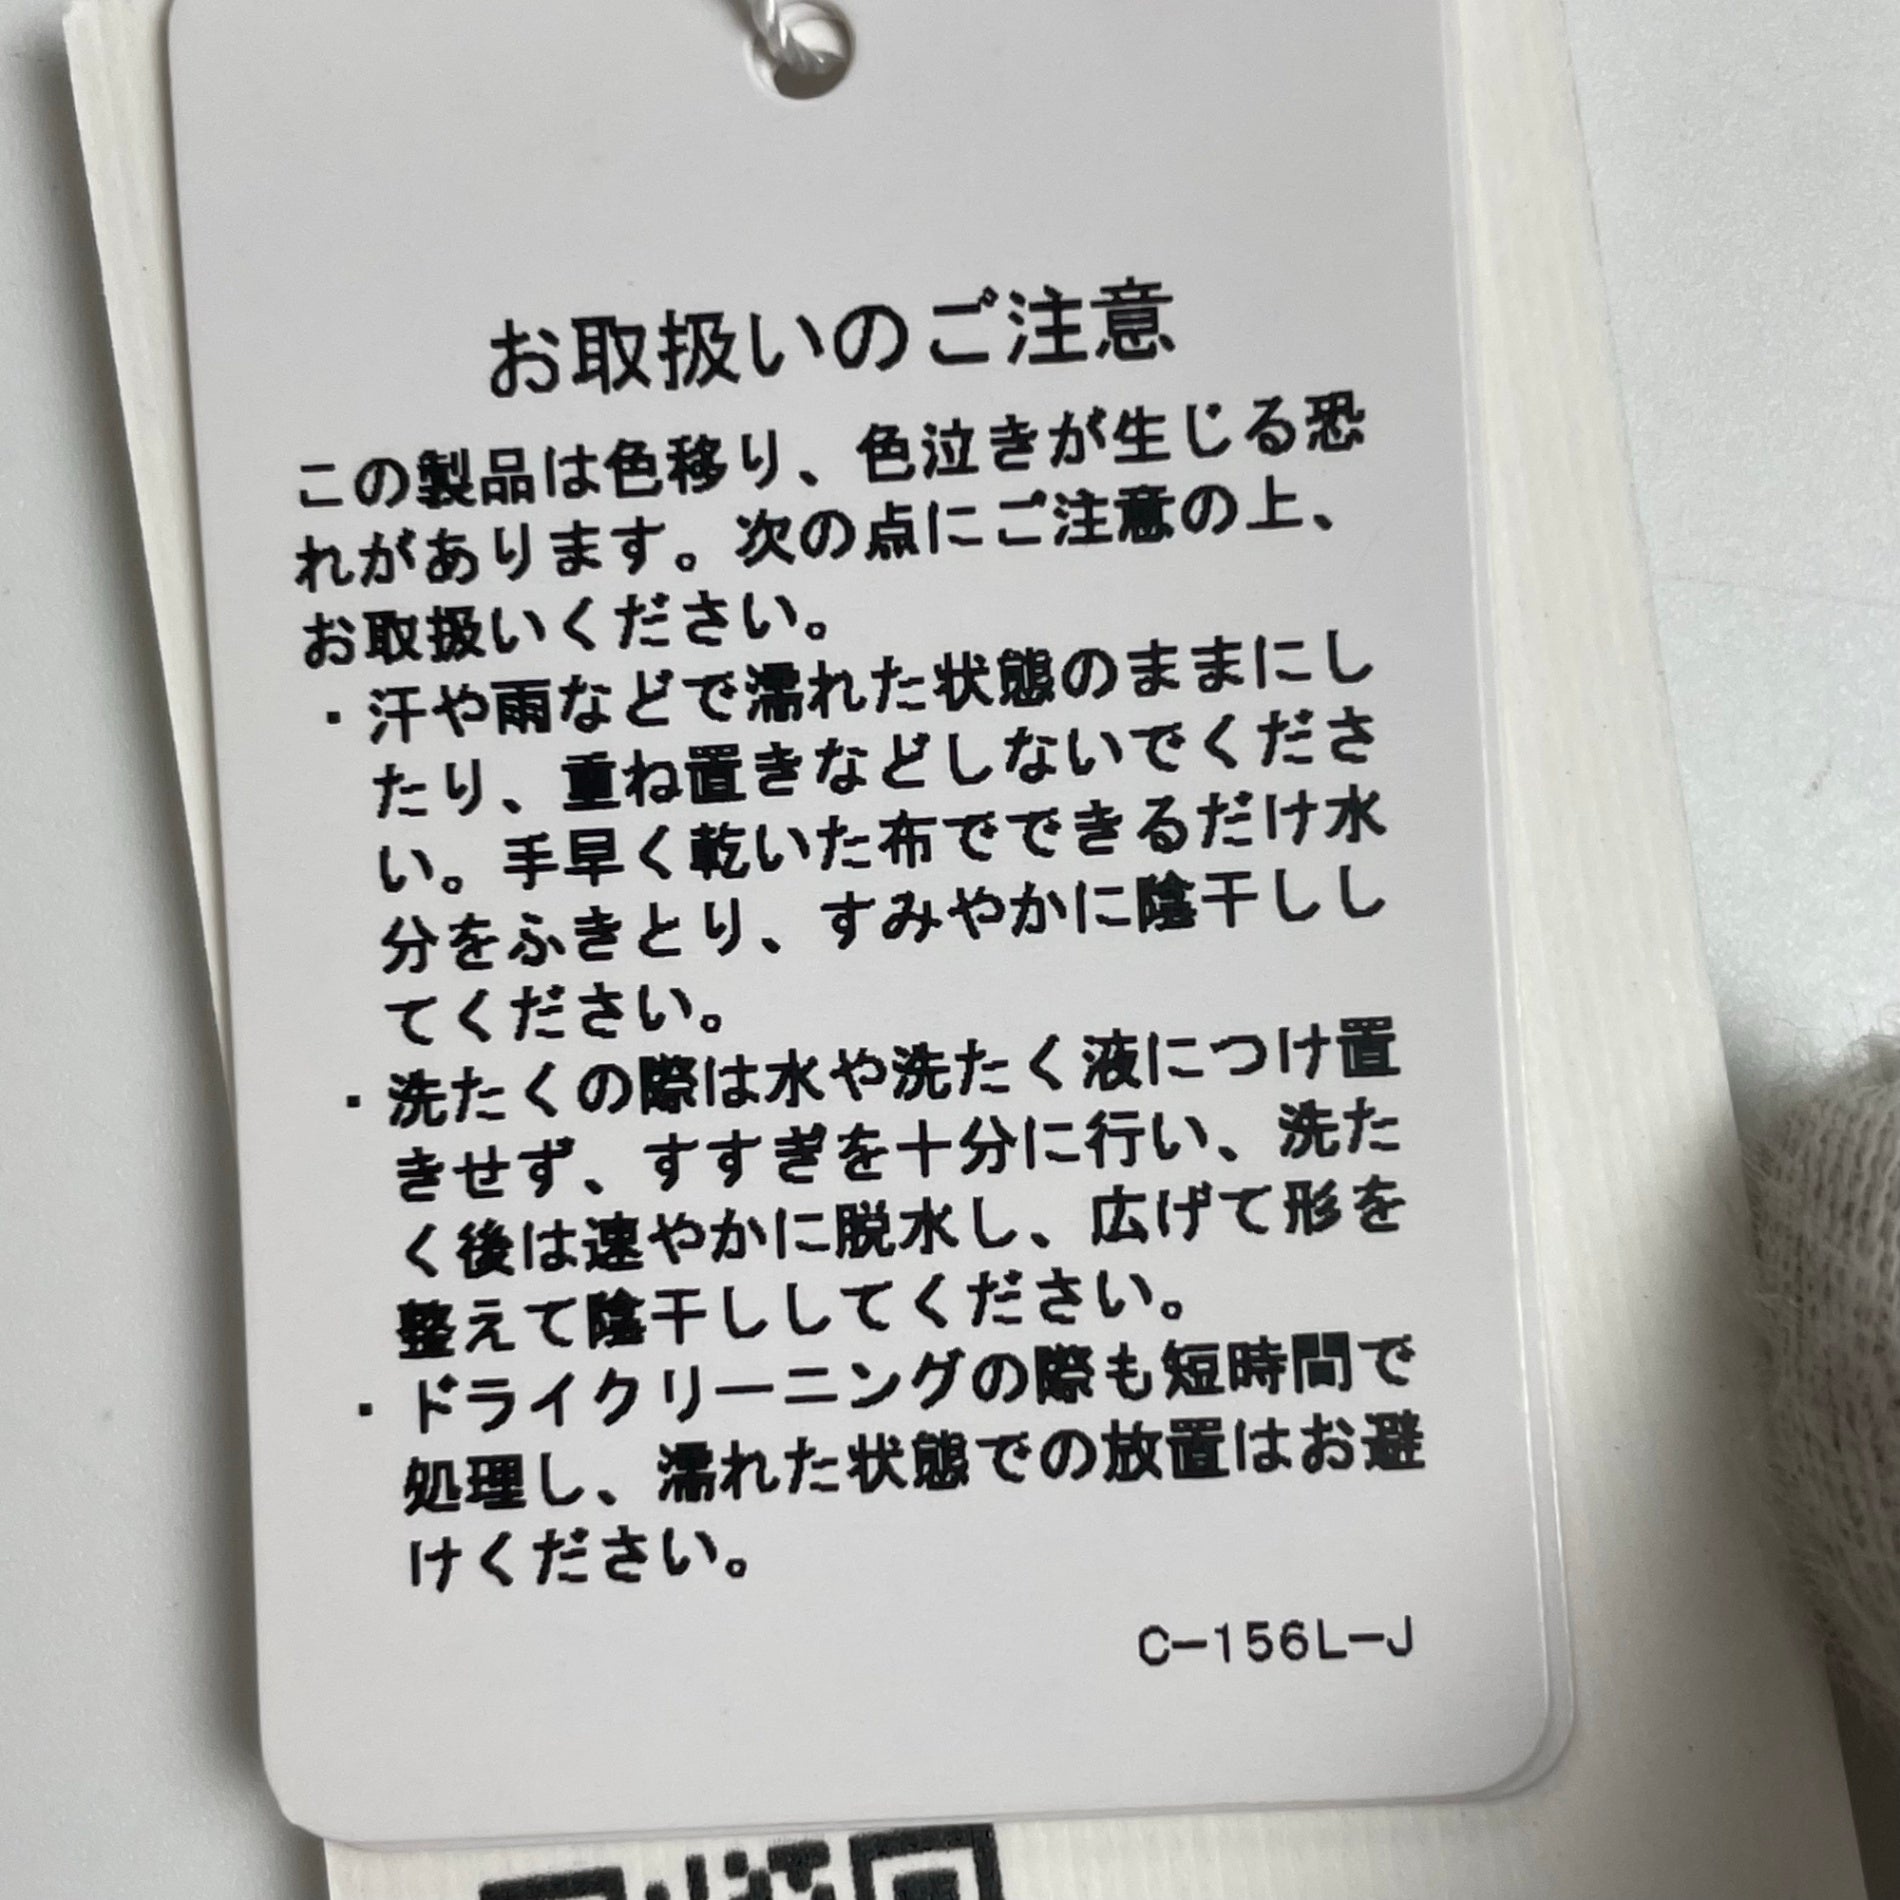 お取扱いのご注意
この製品は色移り、色泣きが生じる恐
れがあります。次の点にご注意の上、
お取扱いください。
・汗や雨などで濡れた状態のままにし
たり、重ね置きなどしないでくださ
い。手早く乾いた布でできるだけ水
分をふきとり、すみやかに陰干しし
てください。
・洗たくの際は水や洗たく液につけ置
きせず、すすぎを十分に行い、洗た
く後は速やかに脱水し、広げて形を
整えて陰干ししてください。
・ドライクリーニングの際も短時間で
処理し、濡れた状態での放置はお避
けください。
C-156L-J